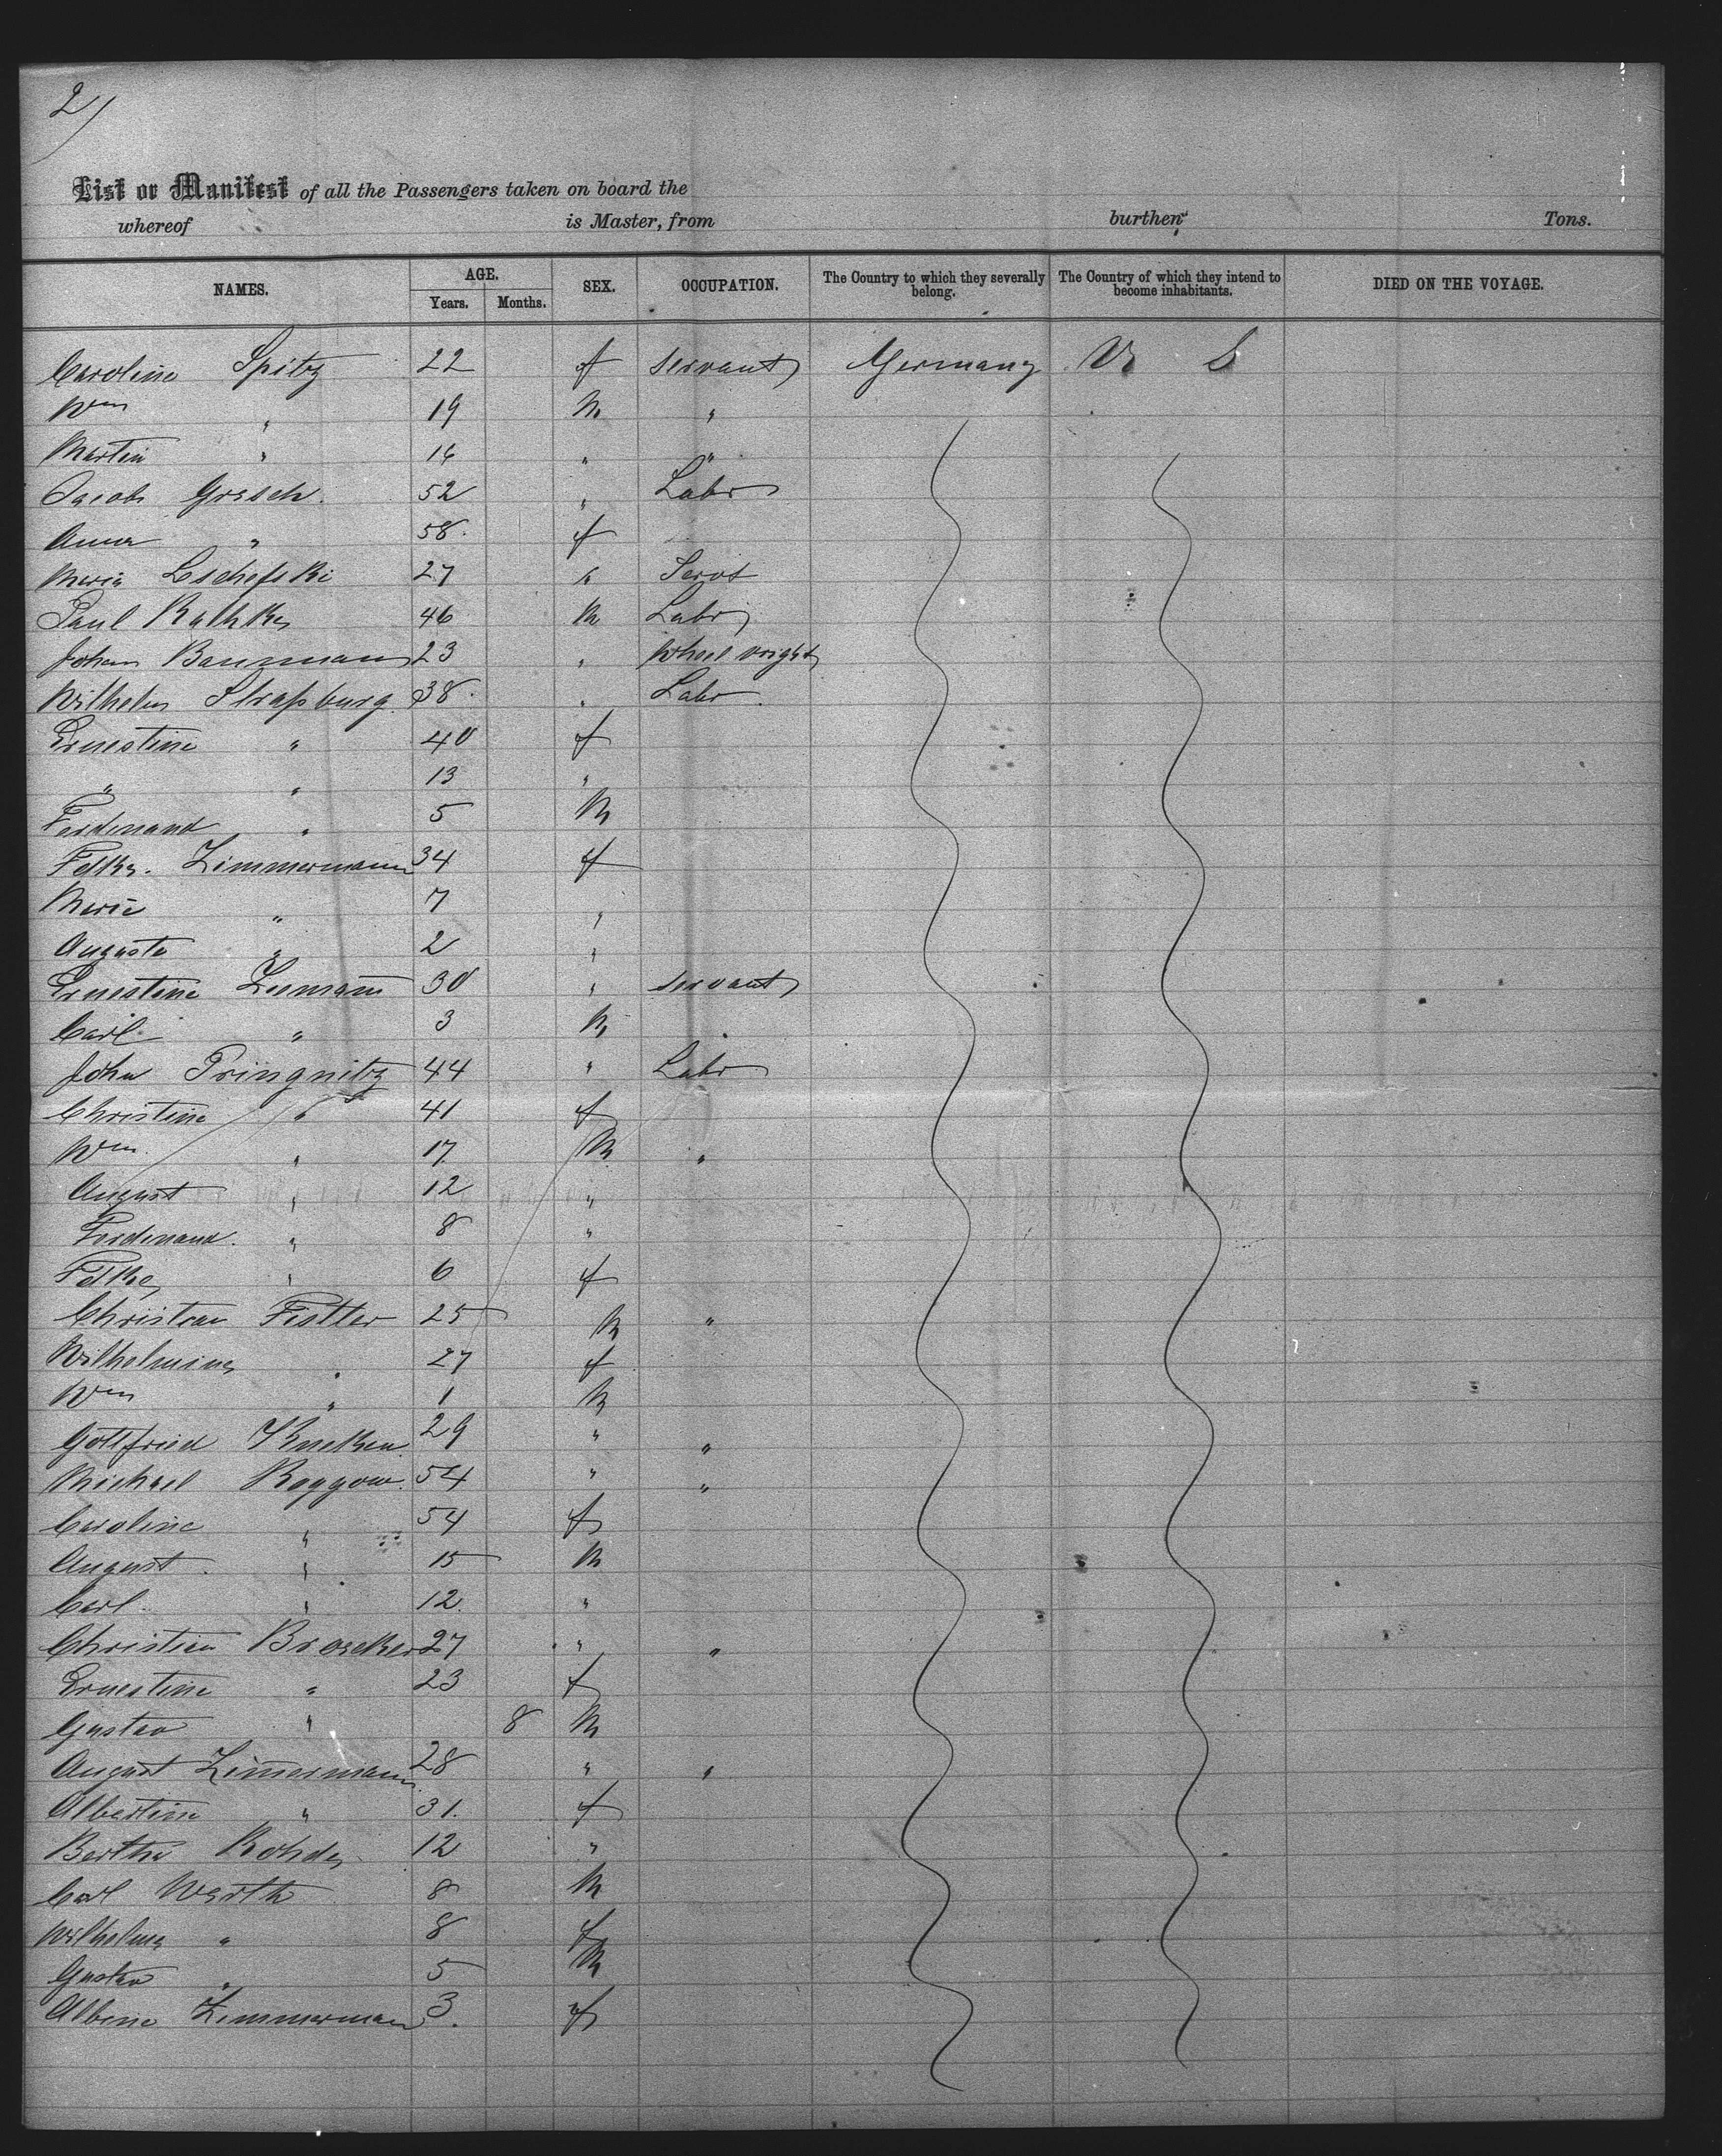 2/
List or Manifest of all the Passengers taken on board the
whereof is Master, from burthen Tons.
NAMES. AGE. Years. Months. SEX. OCCUPATION. The Country to which they severally belong. The Country of which they intend to become inhabitants. DIED ON THE VOYAGE.
Caroline Spitz 22 f servant Germany U S
Wm " 19 M "
Martin " 16 " "
Jacob Gresch. 52 " Labr
Anna " 58. f
Maria Leschefski 27 " Servt
Paul Rathke 46 M Labr
Johan Baumann 23 " Wheel wright
Wilhelm Straßburg 38. " Labr
Ernestine " 40 f
" " 13 "
Ferdinand " 5 M
Zimmermann 34 f
Marie " 7 "
Augusta " 2 "
Ernestine 30 " servant
Carl " 3 M
John Pringnitz 44 " Labr
Christine " 41 f
Wm. " 17 M "
August " 12 "
Ferdinand. " 8 "
" 6 f
Christian Fistler 25 M "
Wilhelmine " 27 f
Wm " 1 M
Gottfried 29 " "
Michael Roggow. 54 " "
Caroline " 54 f
August " 15 M
Carl " 12. "
Christian 27 " "
Ernestine " 23 f
Gustav " 8 M
August Zimermann 28 " "
Albertine " 31. f
Bertha Rohde 12 "
Carl Werth 8 M
Wilhelm " 8 f
Gustav " 5 M
Albine Zimmerman 3. f